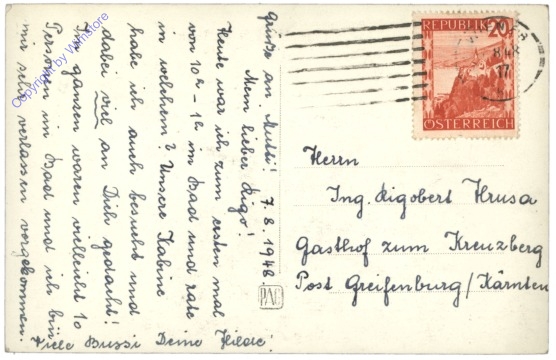 Grüße an Mutti! 7.8.1948.
Mein lieber Rigo!
Heute war ich zum ersten mal
von 10h - 1h im Bad und rate
in welchem? Unsere Kabine
habe ich auch besucht und
dabei viel an Dich gedacht!
Im ganzen waren vielleicht 10
Personen im Bad und ich bin
mir sehr verlassen vorgekommen.
Viele Bussi Deine Hilde!
PAG
REPUBLIK
20
ÖSTERREICH
Herrn
Ing. Rigobert Hrusa
Gasthof zum Kreuzberg
Post Greifenburg/Kärnten
Copyright by Wienstore